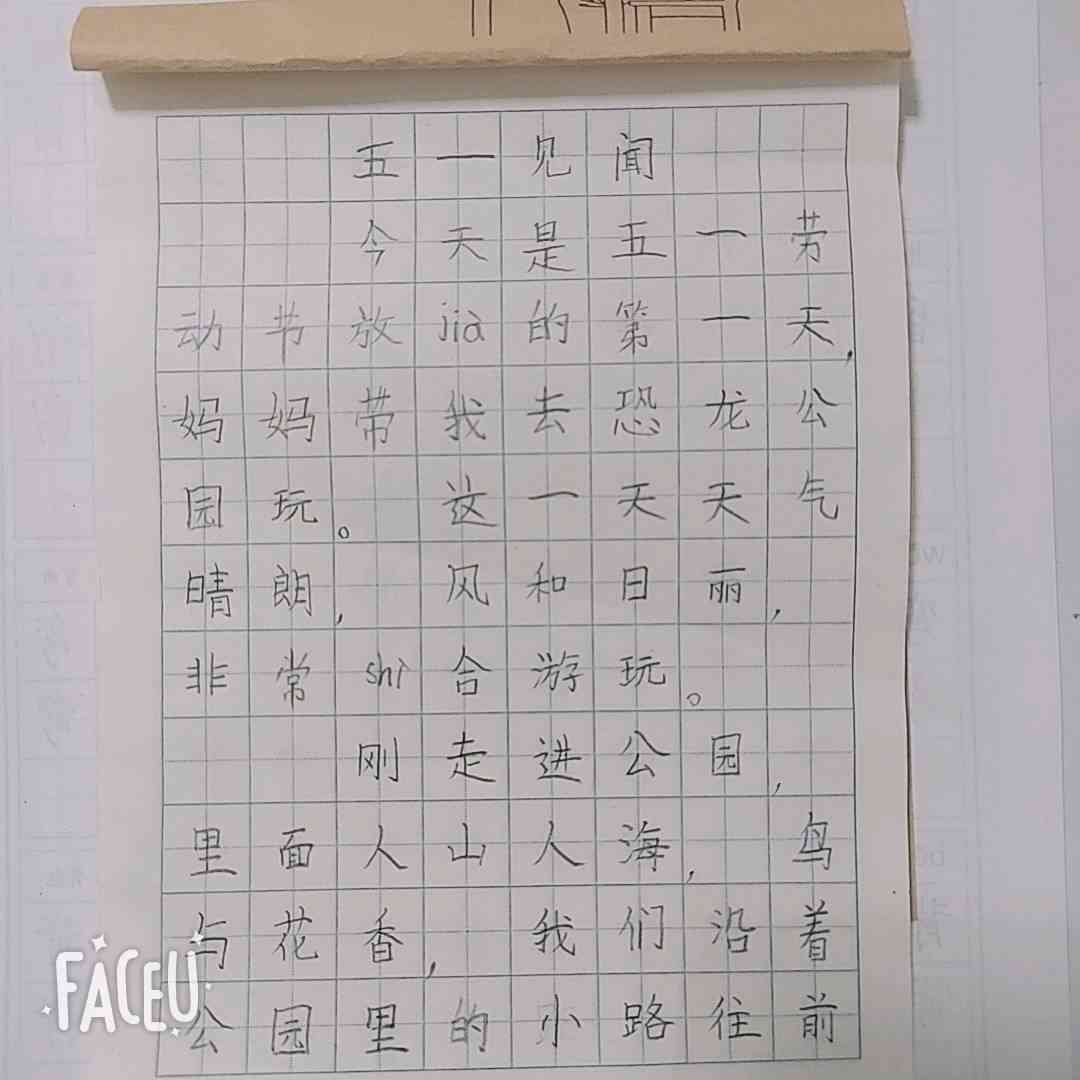 五一见闻
今天是五一劳
动节放jià的第一天，
妈妈带我去恐龙公
园玩。这一天天气
晴朗，风和日丽，
非常shì合游玩。
刚走进公园，
里面人山人海，鸟
与花香，我们沿着
公园里的小路往前
FACEU